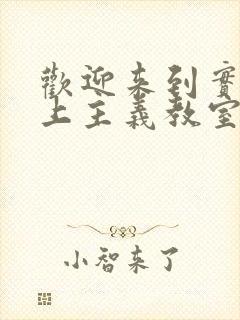 歡迎来到實
上主義教室
小智来了